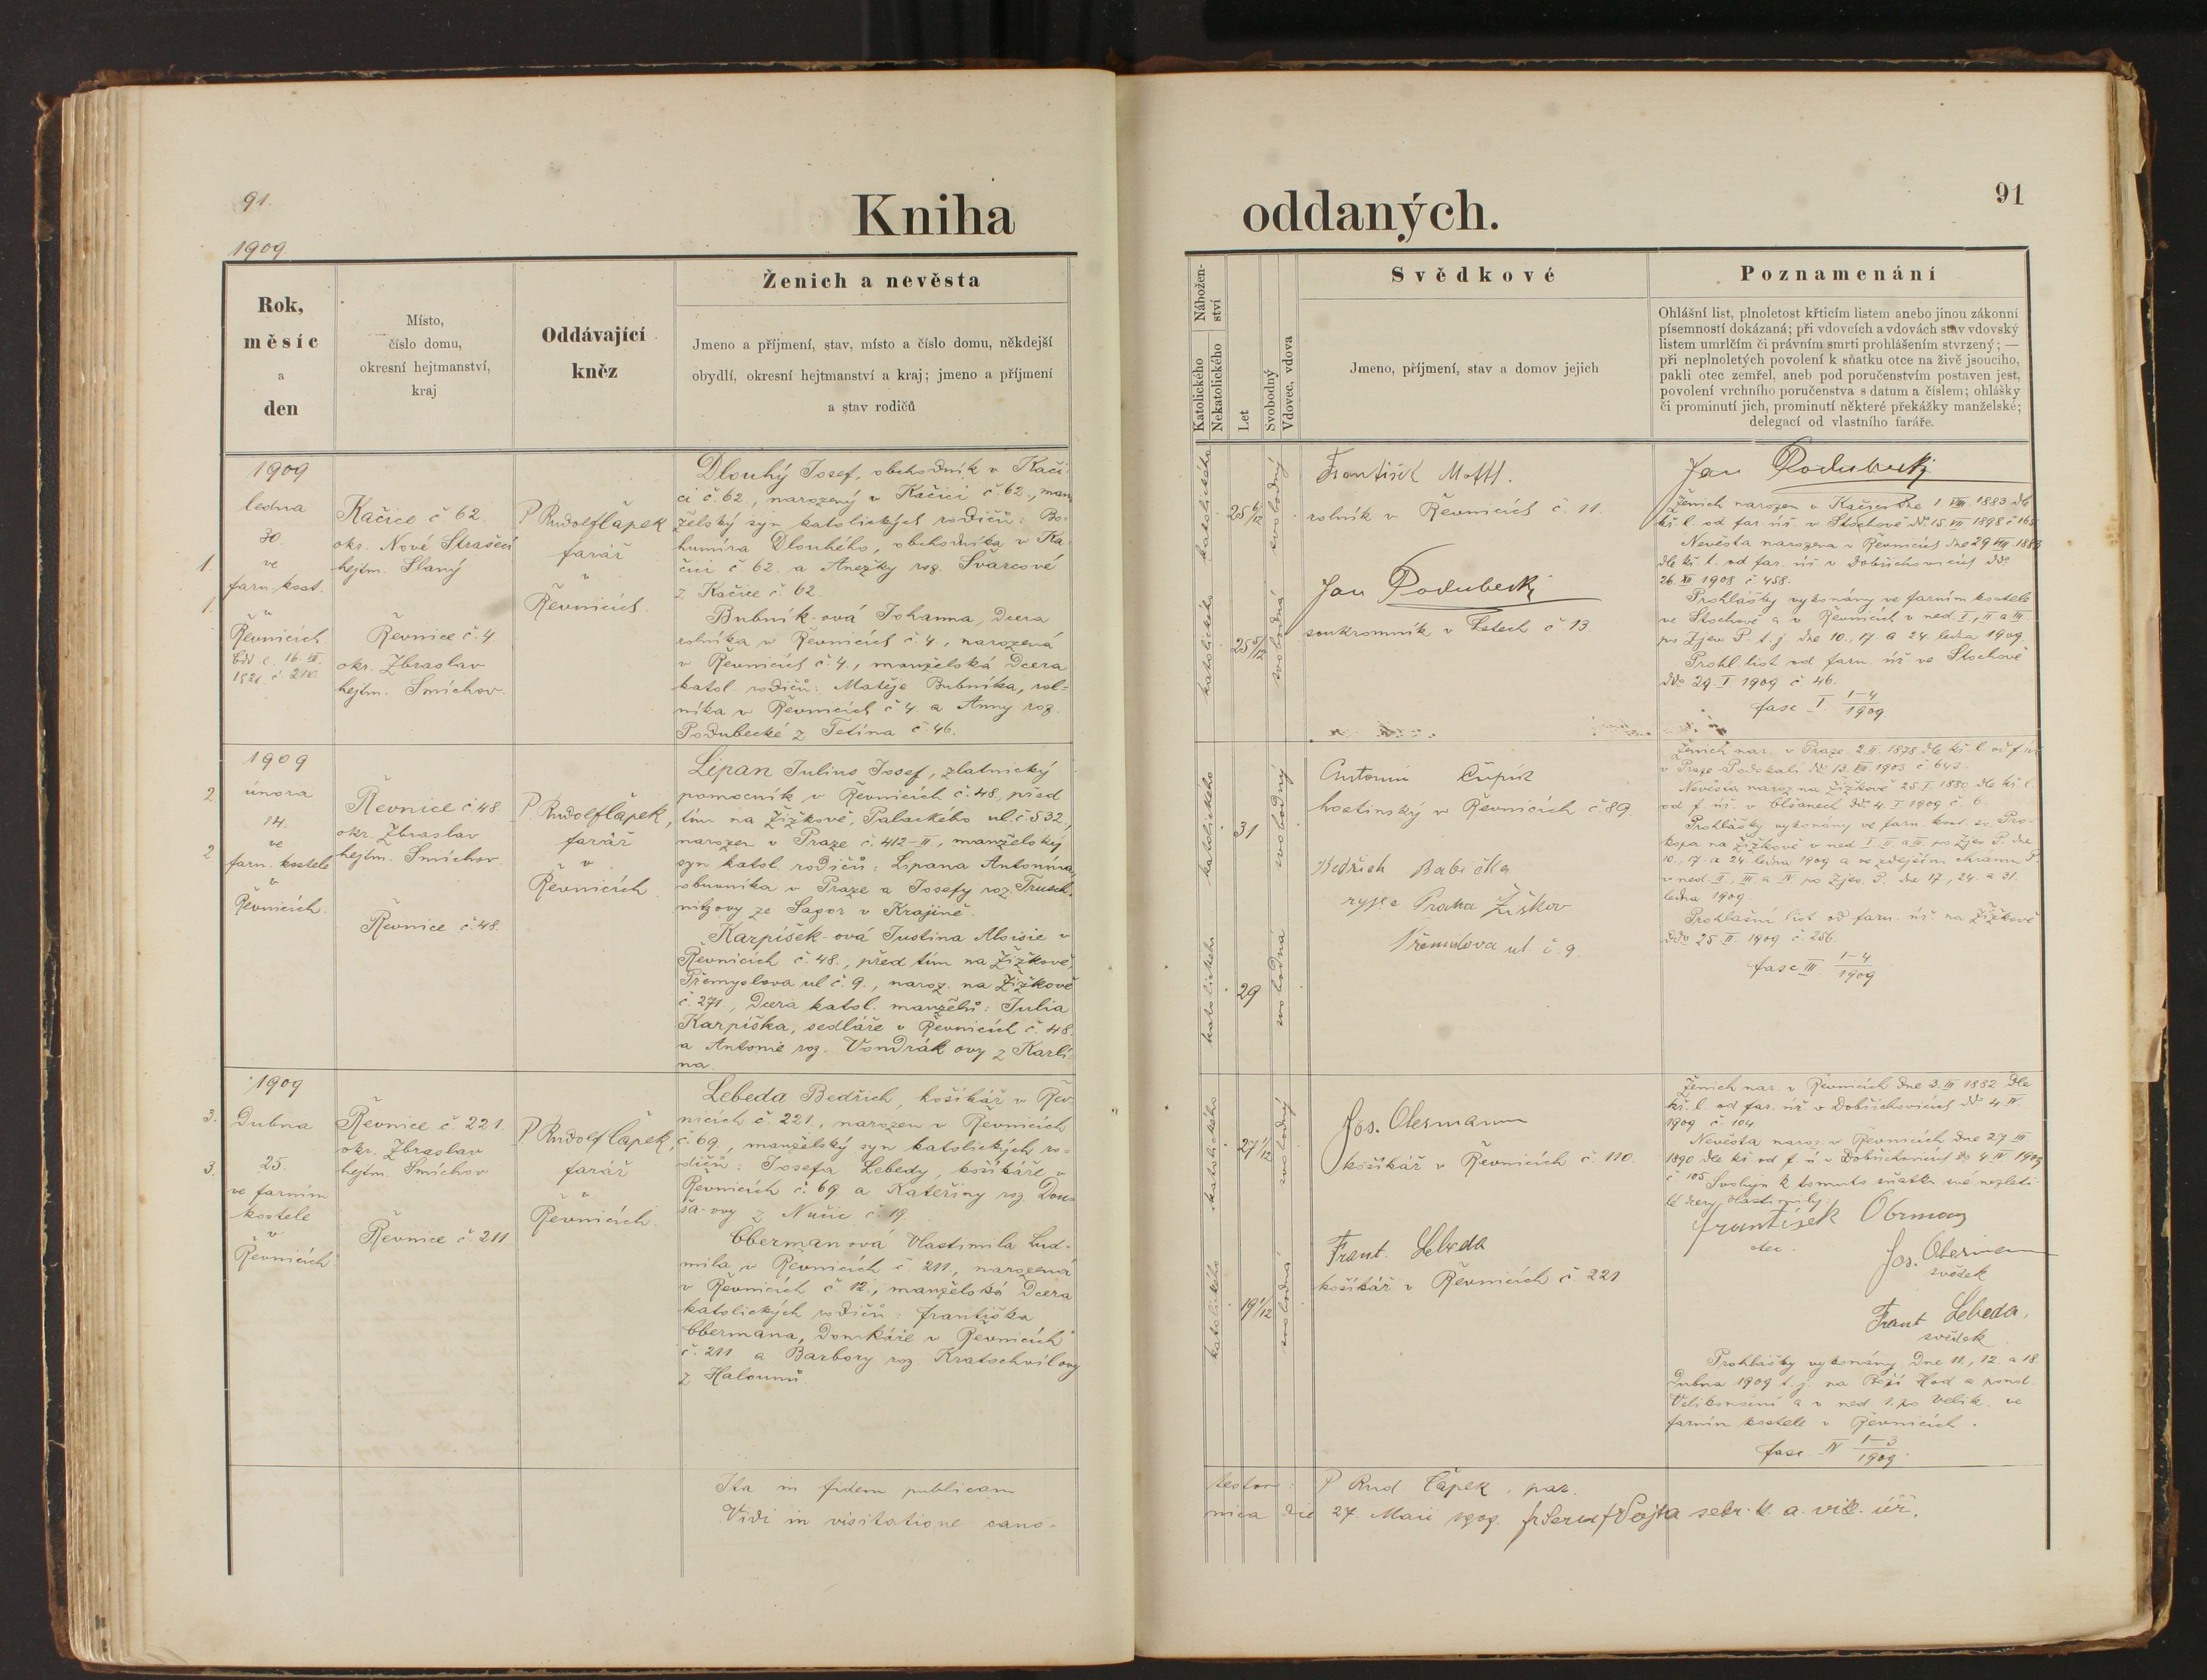 91.
Kniha
1909.
Rok,
měsíc
a
den
Místo,
číslo domu,
okresní hejtmanství,
kraj
Oddávající
kněz
Ženich a nevěsta
Jmeno a příjmení, stav, místo a číslo domu, někdejší
obydlí, okresní hejtmanství a kraj; jmeno a příjmení
a stav rodičů
1909
ledna
30.
ve
farn. kost.
v
Řevnicích.
1
1.
Kačice č 62.
okr. Nové Strašecí
hejtm. Slaný
Řevnice č. 4.
okr. Zbraslav
hejtm. Smíchov.
P Rudolf Čapek
farář
v
Řevnicích.
Dlouhý Josef, obchodník v Kači
ci č. 62., narozený v Kačici č. 62., man
želský syn katolických rodičů: Bo-
humíra Dlouhého, obchodníka v Ka
čici č 62. a Anežky roz. Švarcové
z Kačice č. 62.
Bubník-ová Johanna, dcera
rolníka v Řevnicích č. 4, narozená
v Řevnicích č. 4., manželská dcera
katol. rodičů: Matěje Bubníka, rol-
níka v Řevnicích č 4. a Anny roz.
Podubecké z Tetína č 46.
1909
února
14.
ve
farn. kostele
v
Řevnicích.
2
2
Řevnice č. 48
okr. Zbraslav
hejtm. Smíchov
Řevnice č. 48.
P. Rudolf Čapek,
farář
v
Řevnicích
Lipan Julius Josef, zlatnický
pomocník v Řevnicích č. 48., před
tím na Žižkově, Palackého ul. č. 532.,
narozen v Praze č. 412-II., manželský
syn katol. rodičů: Lipana Antonína,
obuvníka v Praze a Josefy roz. Trusch-
nitzovy ze Sagor v Krajině.
Karpíšek-ová Justina Aloisie v
Řevnicích č. 48., před tím na Žižkově,
Přemyslova ul č. 9., naroz. na Žižkově
č. 271., dcera katol. manželů: Julia
Karpíška, sedláře v Řevnicích č. 48.
a Antonie roz. Vondrákovy z Karlí-
na.
1909
Dubna
25.
ve farním
kostele
v
Řevnicích
3.
3.
Řevnice č. 221.
okr. Zbraslav
hejtm. Smíchov
Řevnice č. 211
P Rudolf Čapek,
farář
v
Řevnicích.
Lebeda Bedřich, košíkář v Řev-
nicích č. 221., narozen v Řevnicích
č. 69, manželský syn katolických ro-
dičů: Josefa Lebedy, košíkáře v
Řevnicích č. 69 a Kateřiny roz. Dou-
ša-ovy z Nučic č. 19.
Oberman ová Vlastimila Lud-
mila v Řevnicích č 211, narozená
v Řevnicích č. 12., manželská dcera
katolických rodičů: Františka
Obermana, domkáře v Řevnicích
č. 211 a Barbory roz. Kratochvílovy
z Halounů.
Ita in fidem publicam
Vidi in visitatione cano-
oddaných.
91
Nábožen-
ství
Katolického
Nekatolického
Let
Svobodný
Vdovec, vdova
Svědkové
Jmeno, příjmení, stav a domov jejich
Poznamenání
Ohlášní list, plnoletost křticím listem anebo jinou zákonní
písemností dokázaná; při vdovcích a vdovách stav vdovský
listem umrlčím či právním smrti prohlášením stvrzený; —
při neplnoletých povolení k sňatku otce na živě jsoucího,
pakli otec zemřel, aneb pod poručenstvím postaven jest,
povolení vrchního poručenstva s datum a číslem; ohlášky
či prominutí jich, prominutí některé překážky manželské;
delegací od vlastního faráře.
katolického
svobodný
katolického
25 5/12
svobodná
František Mottl.
rolník v Řevnicích č. 11.
Jan Podubecký
soukromník v Letech č. 13.
Jan Podubecký
Ženich narozen v Kačici dne 1. VIII. 1883 dle
kř. l. od far. úř. v Stochově
Nevěsta narozena v Řevnicích dne 29
dle kř. l. od far. úř. v Dobřichovicích ddo
26. XII 1908 č 458.
Prohlášky vykonány ve farním kostele
ve Stochově a v Řevnicích v ned. I., II a III
po Zjev. P. t. j. dne 10., 17. a 24. ledna 1909.
Prohl. list od farn. úř. ve Stochově
ddo 29. I. 1909 č 46.
fasc I. 1-4/1909
katolického
31
svobodný
katolického
29
svobodná
Antonín Čupík
hostinský v Řevnicích č. 89.
Bedřich Babička
Praha Žižkov
Přemyslova ul. č. 9.
Ženich nar. v Praze 2. II. 1878 dle kř. l. od f. úř.
Nevěsta naroz. na Žižkově 25. I. 1880 dle kř. l.
od f. úř. v Olšanech dd. 4. I. 1909 č. 6.
Prohlášky vykonány ve farn. kost. sv. Pro-
kopa na Žižkově v ned I., II. a III. po Zjev. P. dne
10., 17. a 24. ledna 1909 a ve zdejším chrámu P.
v ned. II., III. a IV po Zjev. P. dne 17., 24. a 31.
ledna 1909.
Prohlašní list od farn. úř. na Žižkově
1909 č. 256.
fasc III. 1-4/1909
katolického
27 1/12
svobodný
katolického
19 1/12
svobodná
Jos. Obermann
košíkář v Řevnicích č. 110.
Frant. Lebeda
košíkář v Řevnicích č. 221
Ženich nar. v Řevnicích dne 3. III. 1882 dle
kř. l. od far. úř. v Dobřichovicích ddo 4 IV.
1909 č. 104
Nevěsta naroz. v Řevnicích dne 27. III
1890 dle kř od f. ú. v Dobřichovicích do 4. IV 1909
č 105. Svoluji k tomuto sňatku své nezleti-
lé dcery Vlastimily:
František Obrman
otec.
Jos. Obermann
svědek
Frant Lebeda,
svědek
Prohlášky vykonány dne 11., 12. a 18.
dubna 1909 t. j. na Boží Hod a pond.
Velikonoční a v ned. 1. po Velik. ve
farním kostele v Řevnicích.
fasc. IV 1-3/1909.
testor: P Rud Čapek, par.
nica die 27. Maii 1909.